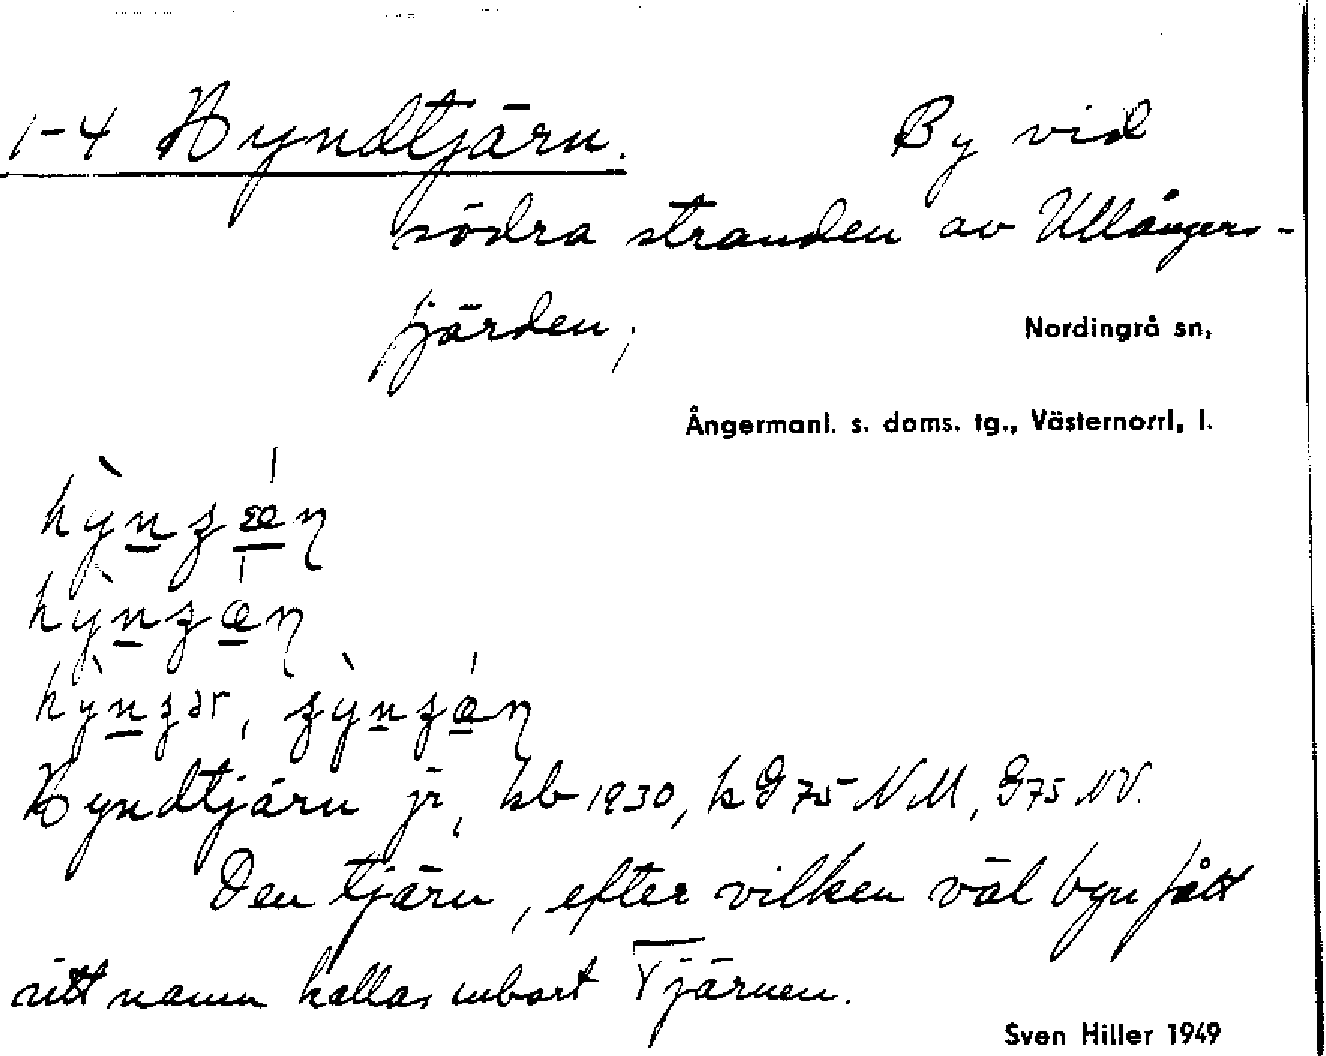 1-4 Hyndtjärn. By vid
södra stranden av Ullångers-
fjärden;
Nordingrå sn,
Ångermanl. s. doms. tg., Västernorrl. l.
Hyndtjärn jr, kb 1930, k G 75 NM, G 75 NV.
Den tjärn, efter vilken väl byn fått
sitt namn kallas enbart Tjärnen.
Sven Hiller 1949